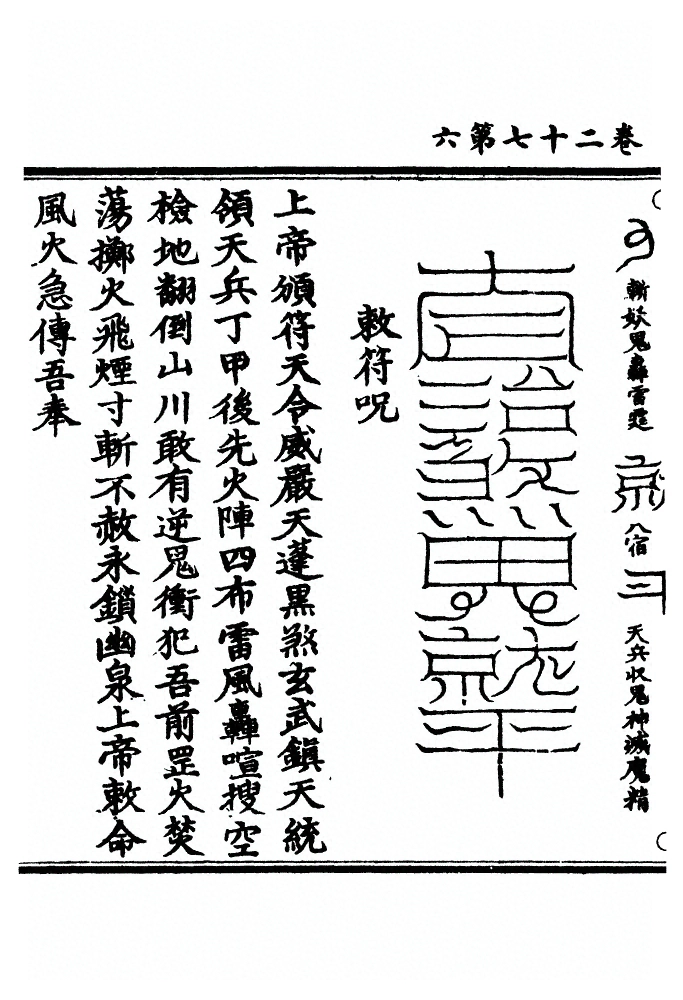 六第七十二卷
斬妖鬼轟雷霆
八宿
天兵收鬼神滅魔精
敕符呪
上帝頒符天令威嚴天蓬黑煞玄武鎮天統
領天兵丁甲後先火陣四布雷風轟喧搜空
檢地翻倒山川敢有逆鬼衝犯吾前罡火焚
蕩擲火飛煙寸斬不赦永鎖幽泉上帝敕命
風火急傳吾奉